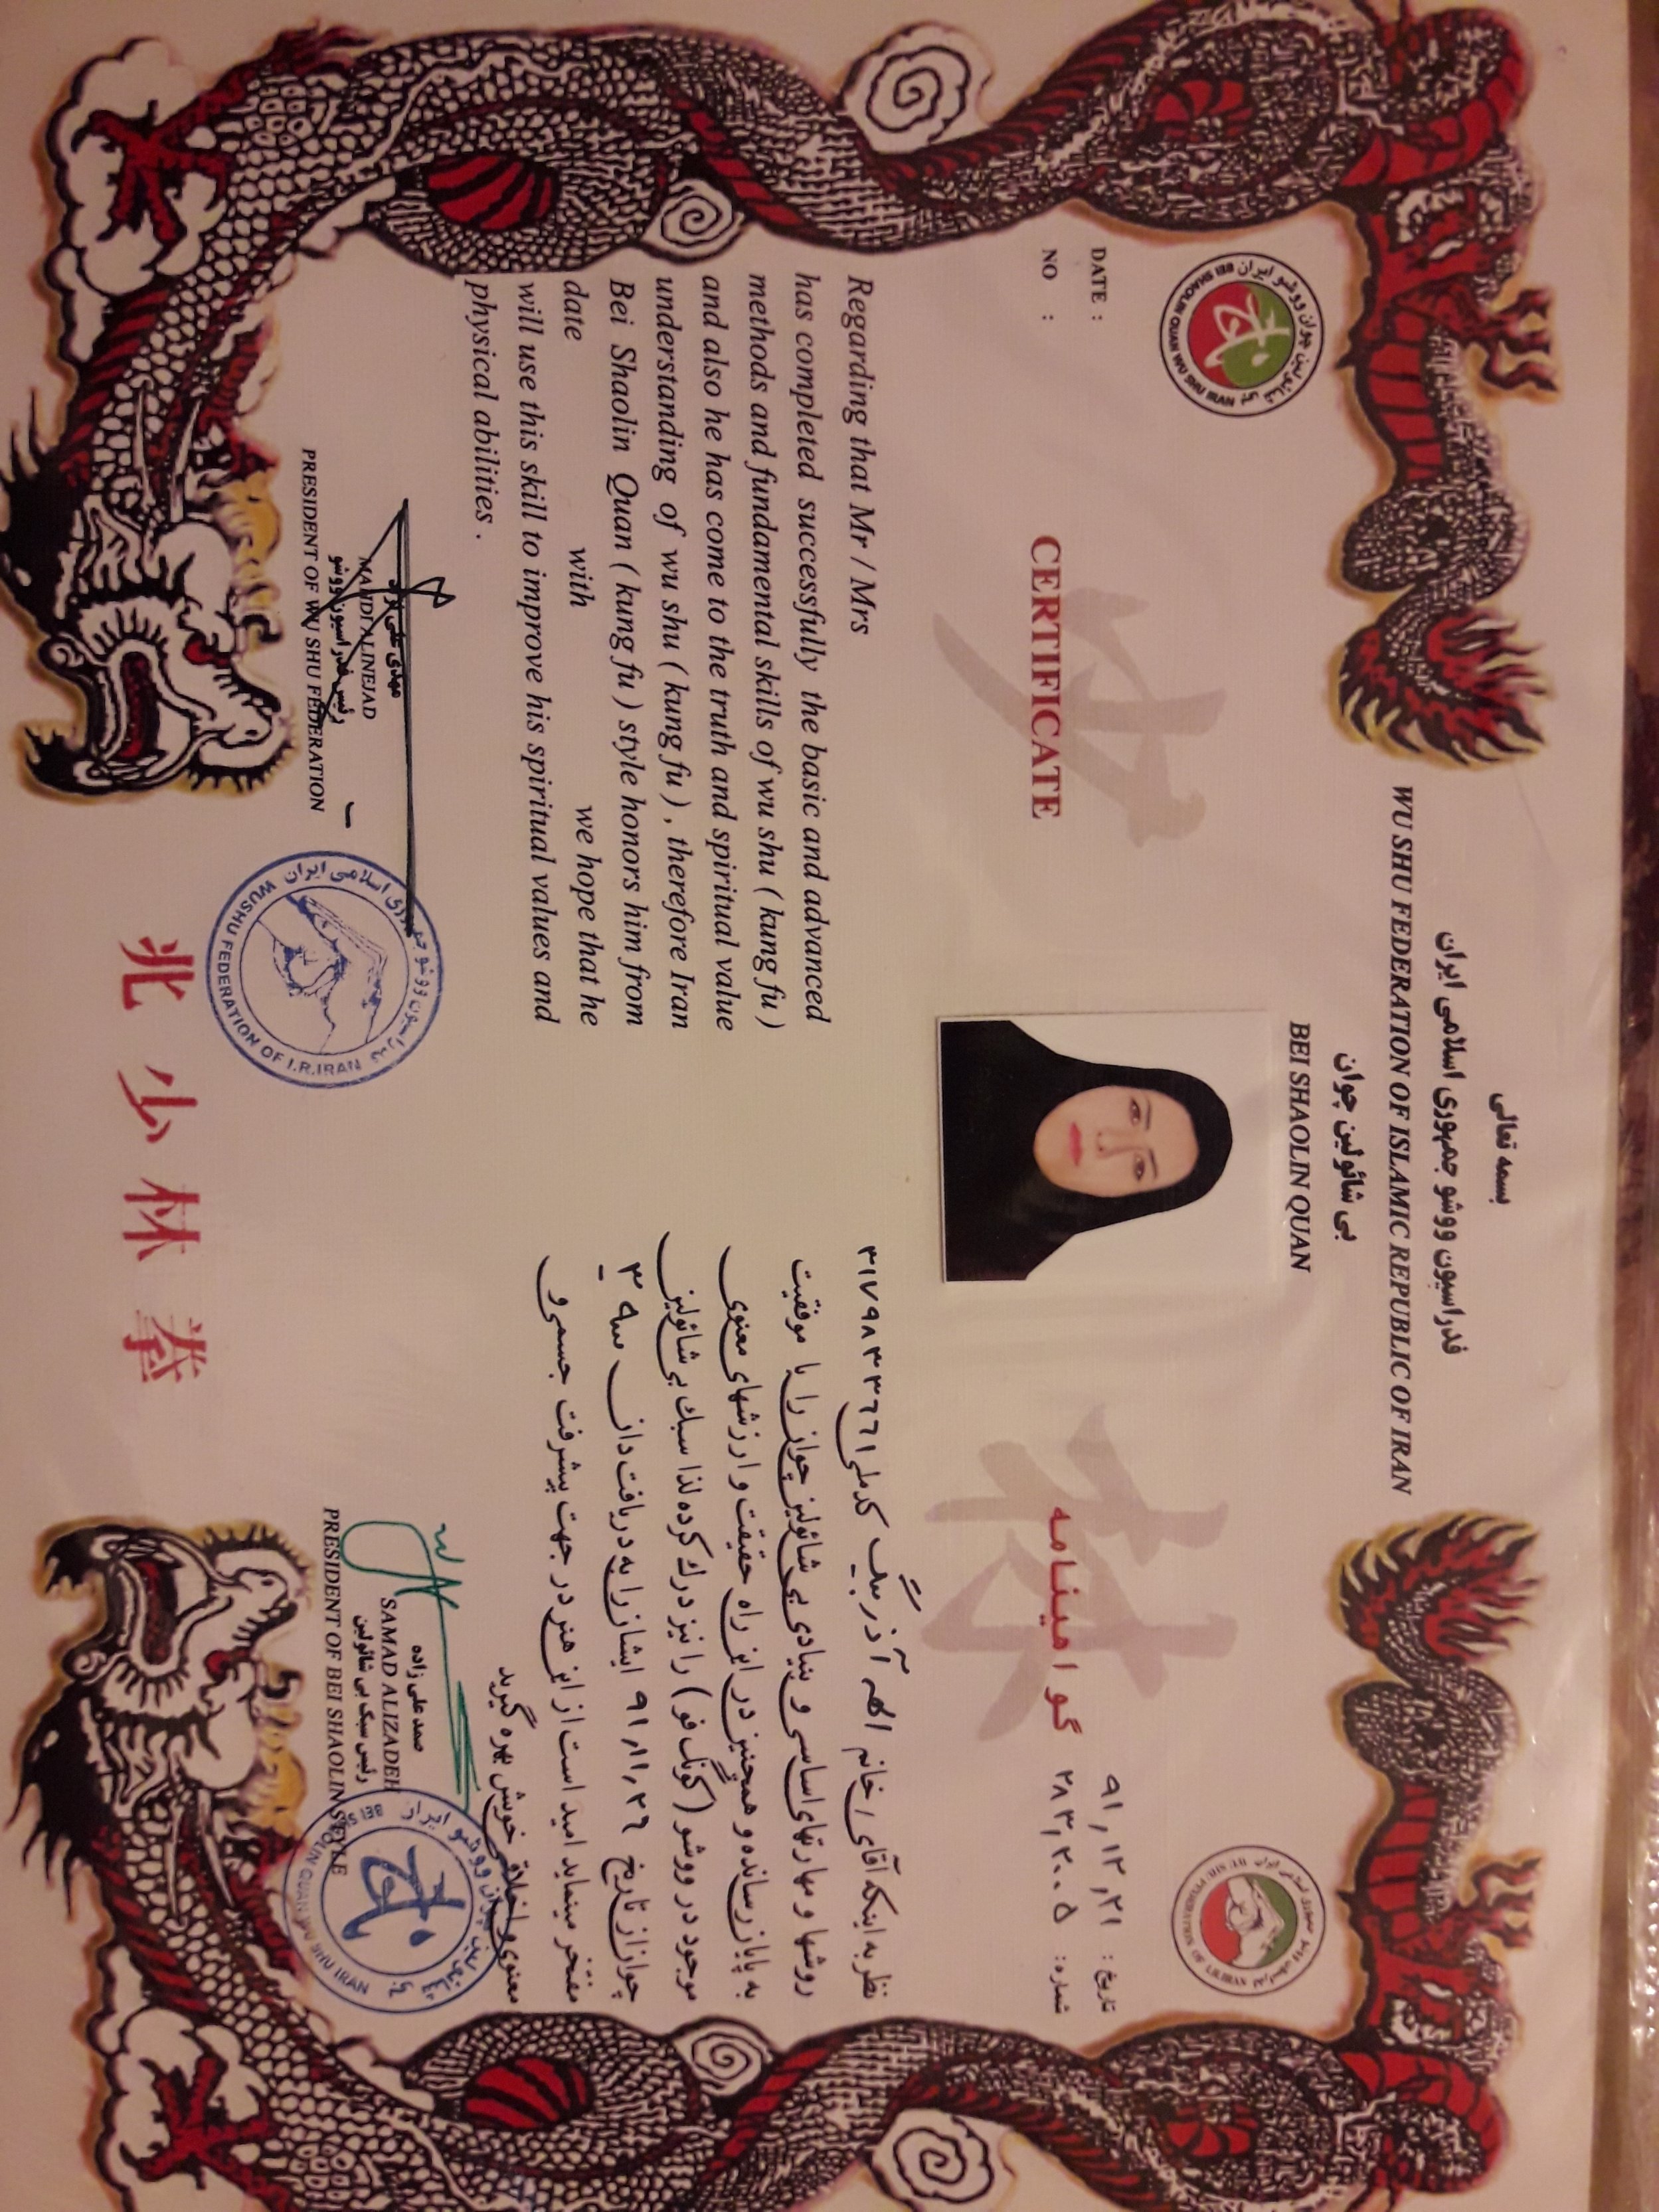 بسمه تعالی
فدراسیون ووشو جمهوری اسلامی ایران
WU SHU FEDERATION OF ISLAMIC REPUBLIC OF IRAN
بی شائولین چوان
BEI SHAOLIN QUAN
DATE :
NO :
CERTIFICATE
Regarding that Mr / Mrs
has completed successfully the basic and advanced
methods and fundamental skills of wu shu ( kung fu )
and also he has come to the truth and spiritual value
understanding of wu shu ( kung fu ) , therefore Iran
Bei Shaolin Quan ( kung fu ) style honors him from
date with we hope that he
will use this skill to improve his spiritual values and
physical abilities .
تاریخ: ۹۱,۱۲,۲۱
شماره: ۲۸۳,۲۰۰۵
گواهینامه
نظر به اینکه آقای / خانم الهه آذربیگ کدملی ۳۱۷۹۸۳۳۶۶۱
روشها و مهارتهای اساسی و بنیادی بی شائولین چوان را با موفقیت
به پایان رسانده و همچنین در این راه حقیقت و ارزشهای معنوی
موجود در ووشو (کونگ فو) را نیز درک کرده لذا سبک بی شائولین
چوان از تاریخ ۹۱,۱۱,۲۶ ایشان را به دریافت دان ۳
مفتخر مینماید امید است از این هنر در جهت پیشرفت جسمی و
معنوی و اخلاقی خویش بهره گیرید
مهدی علی نژاد
MAHDI ALINEJAD
رئیس فدراسیون ووشو
PRESIDENT OF WU SHU FEDERATION
فدراسیون ووشو جمهوری اسلامی ایران
WUSHU FEDERATION OF I.R.IRAN
صمد علی زاده
SAMAD ALIZADEH
رئیس سبک بی شائولین
PRESIDENT OF BEI SHAOLIN STYLE
بی شائولین چوان ووشو ایران
BEI SHAOLIN QUAN WU SHU IRAN
北少林拳